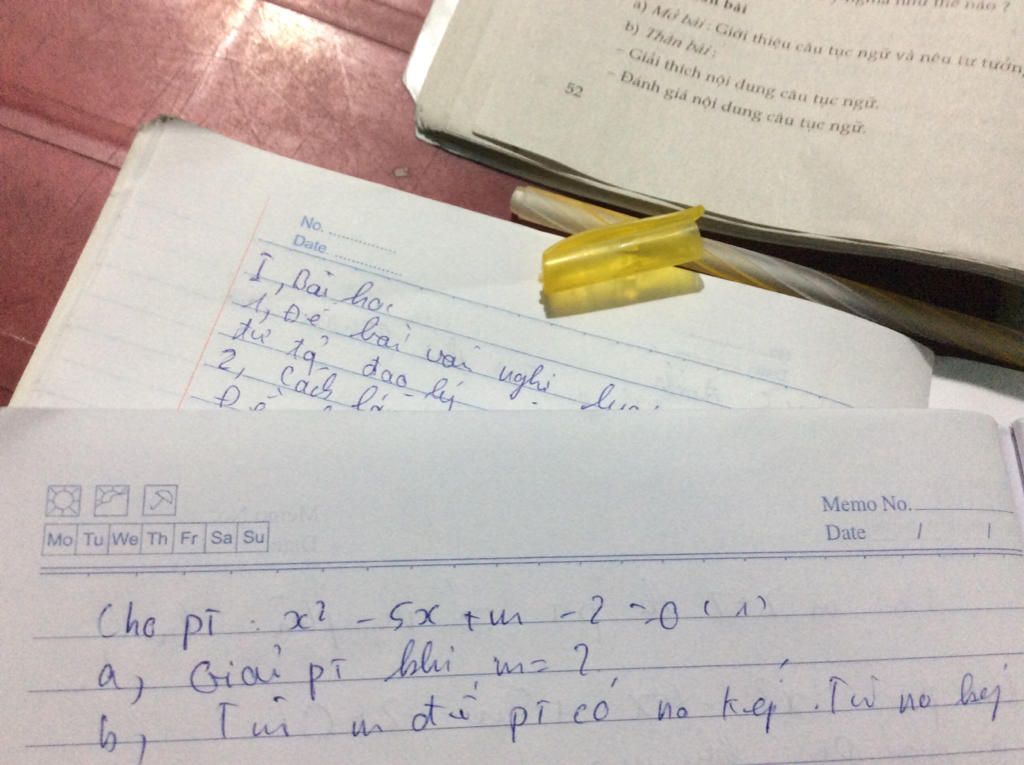 a) Mở bài: Giới thiệu câu tục ngữ và nêu tư tưởng
b) Thân bài:
- Giải thích nội dung câu tục ngữ.
- Đánh giá nội dung câu tục ngữ.
52
No.
Date
I, Bài học
1, Đề bài văn nghị
tư tg đạo lý
2, Cách
Memo No.
Mo Tu We Th Fr Sa Su
Date / /
Cho pT : x² - 5x + m - 2 = 0 (1)
a, Giải pT khi m = 2
b, Tìm m để pT có no kép. Tìm no kép